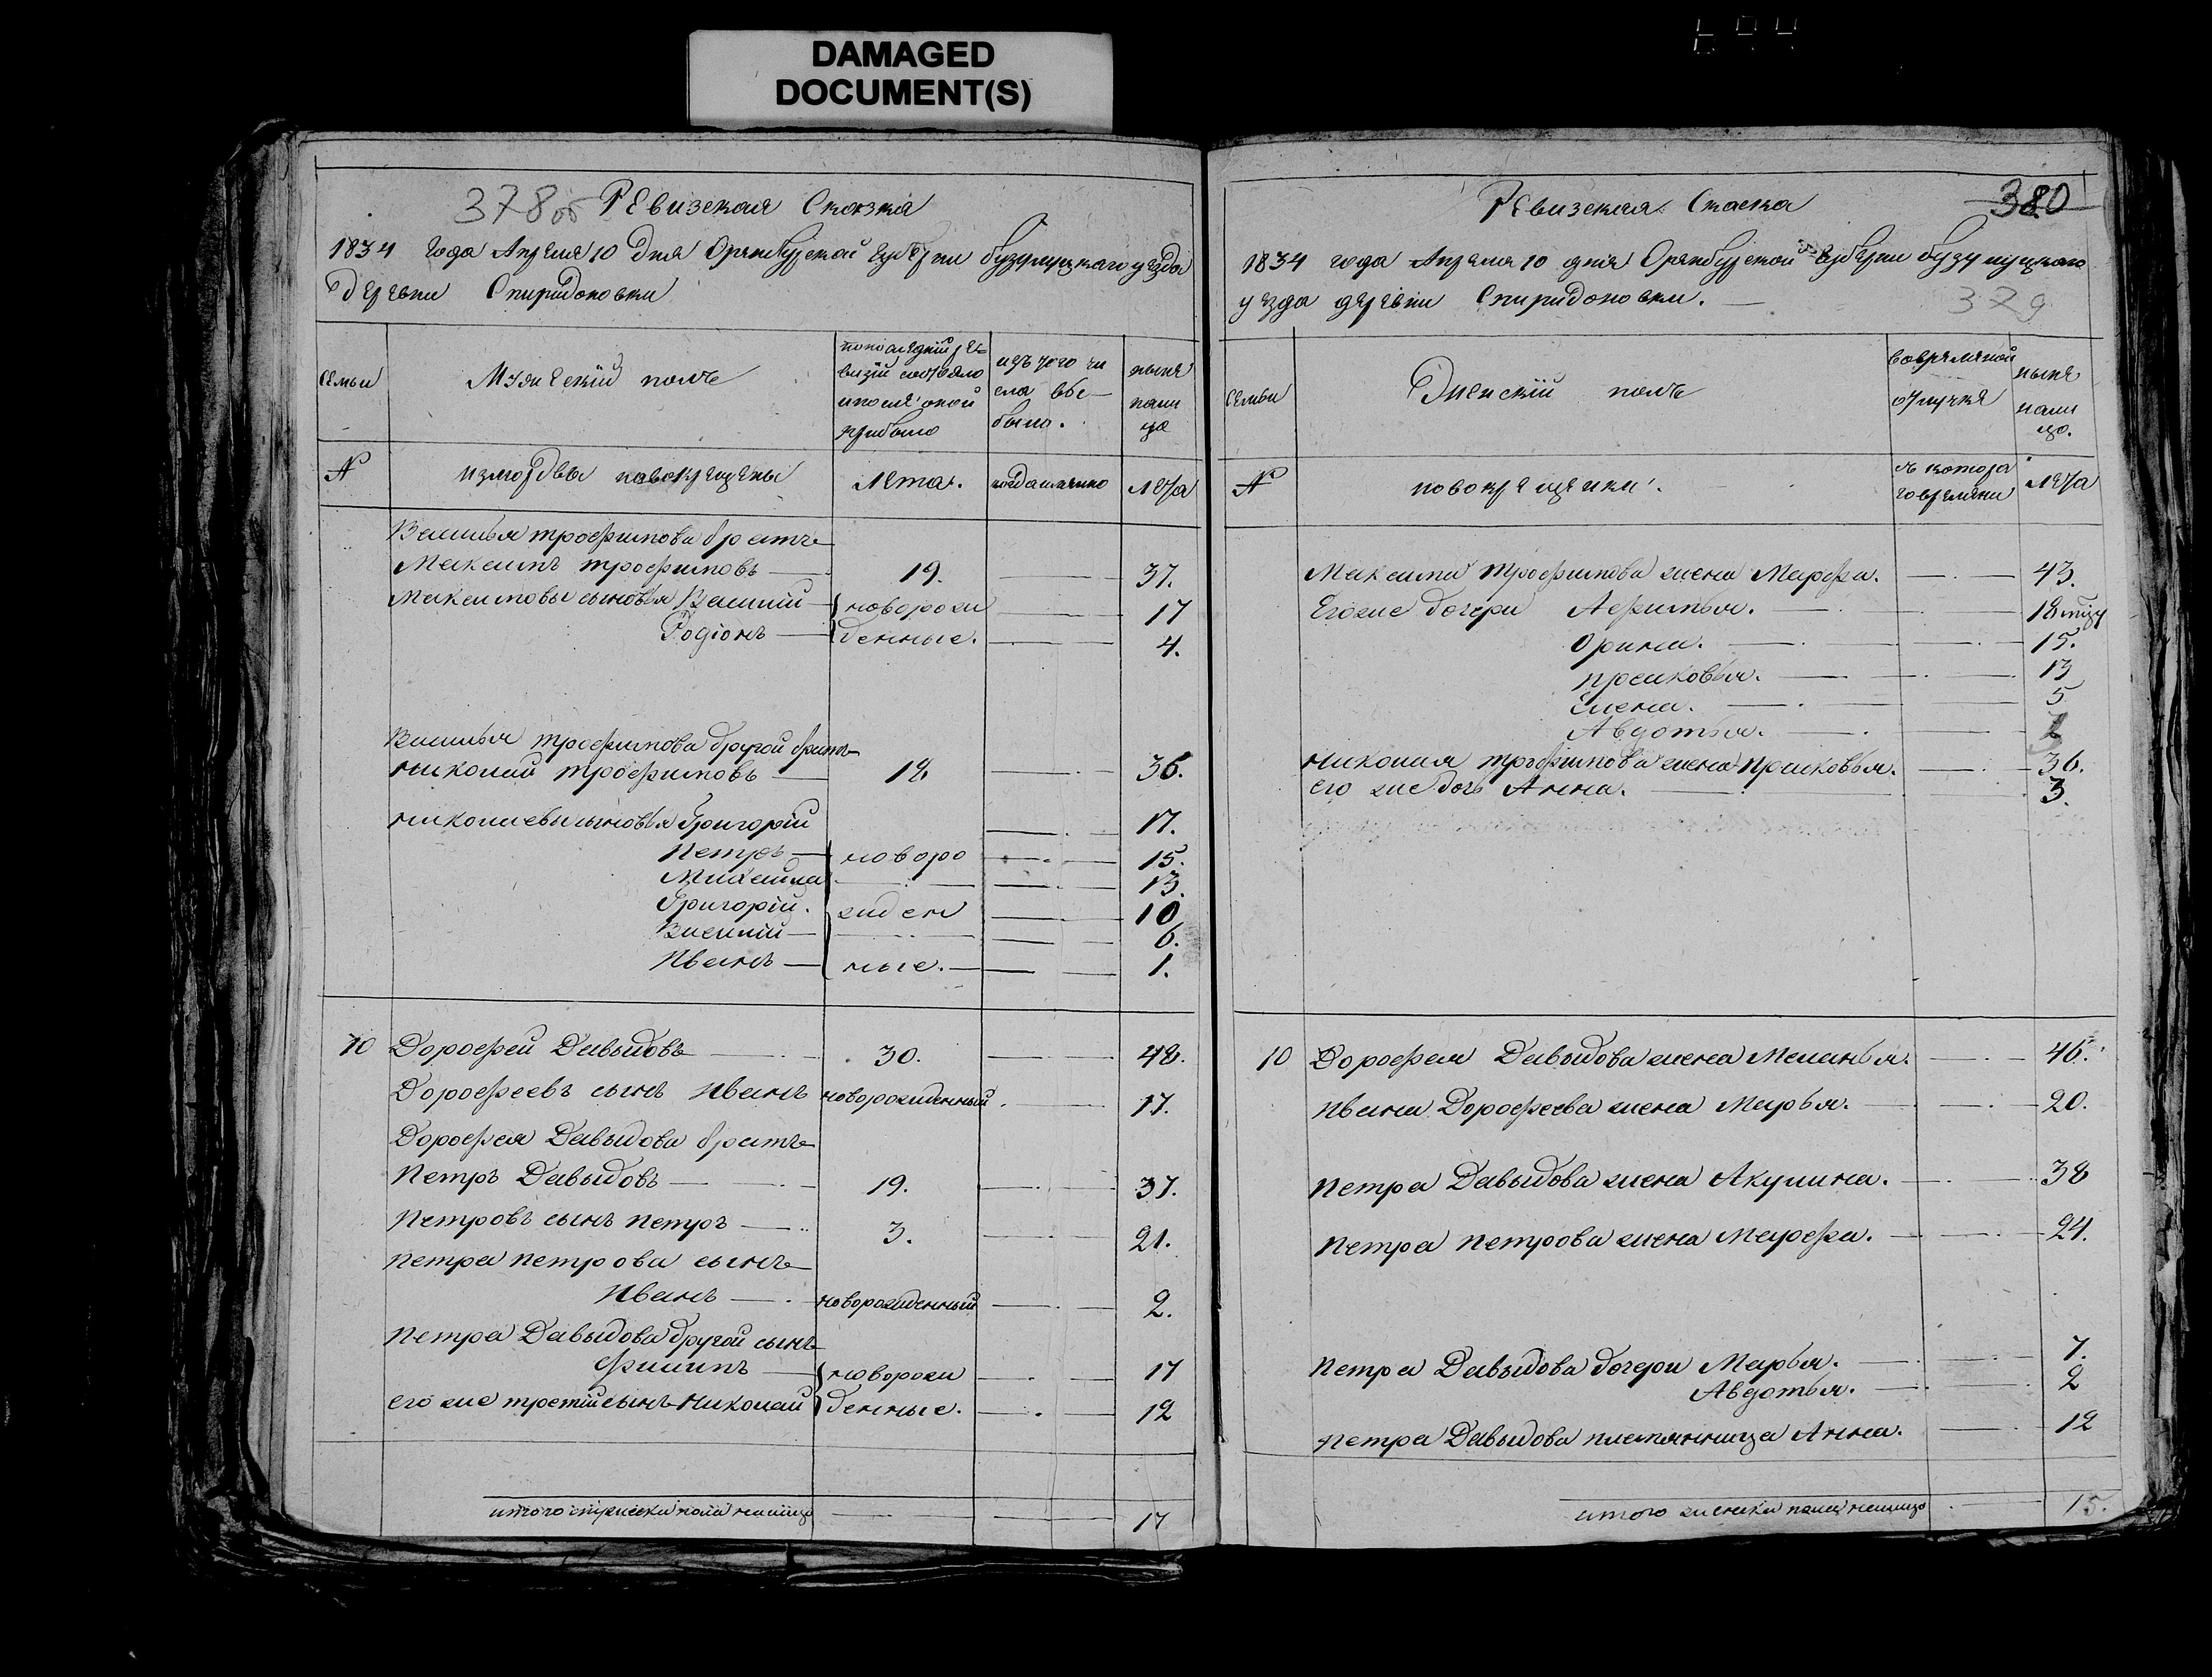 DAMAGED
DOCUMENT(S)
378об Ревизская Скозка
1834 года Апреля 10 Дня Оренбургской губерни бузулуцкаго уезда
Деревни Спиридоновки
семьи
Мужескiй полъ
попоследнiй ре-
визiи состояло
ипосле оной
прибыло
изъ того чи
сла вы-
было.
ныне
нали
цо
№
измордвы новокрещены
Лета.
когда имянно
лета
Василья трофимова братъ
Максимъ трофимовъ 19. 37.
Максимовы сыновья Василiй новорож 17
Родiонъ денные. 4.
Василья трофимова другой братъ
Николай трофимовъ 18 36.
Николаевы сыновья Григорiй 17.
Петръ новоро 15.
Михайла 13.
Григорiй. жден 10
Василiй 6.
Иванъ ные. 1.
10 Дорофей Давыдовъ 30. 48.
Дорофеевъ сынъ Иванъ новорожденный 17.
Дорофея Давыдова братъ
Петръ Давыдовъ 19. 37.
Петровъ сынъ петръ 3. 21.
Петра петрова сынъ
Иванъ новорожденный 2.
Петра Давыдова другой сынъ
Филипъ новорож 17
его же третiй сынъ Николай денные. 12
итого мужеска пола налицо 17
Ревизская Скаска 380
1834 года Апреля 10 дня Оренбургской губерни бузулуцкаго
уезда деревни Спиридоновки. 379
семьи
Женскiй полъ
вовремяной
отлучке
ныне
нали
цо.
№
новокрещенки.
съ котора
го времяни
лета
Максима трофимова жена Марфа. 43.
Его же дочери Афимья. 18
Орина. 15.
прасковья. 13
Елена. 5
Авдотья.
Николая трофимова жена прасковья. 36.
его же дочь Анна. 3.
10 Дорофея Давыдова жена Меланья. 46.
Ивана Дорофеева жена Марья. 20.
Петра Давыдова жена Акулина. 38
Петра петрова жена Марфа. 24.
Петра Давыдова дочери Марья. 7.
Авдотья. 2
Петра Давыдова племянница Анна. 12
итого женска пола налицо 15.